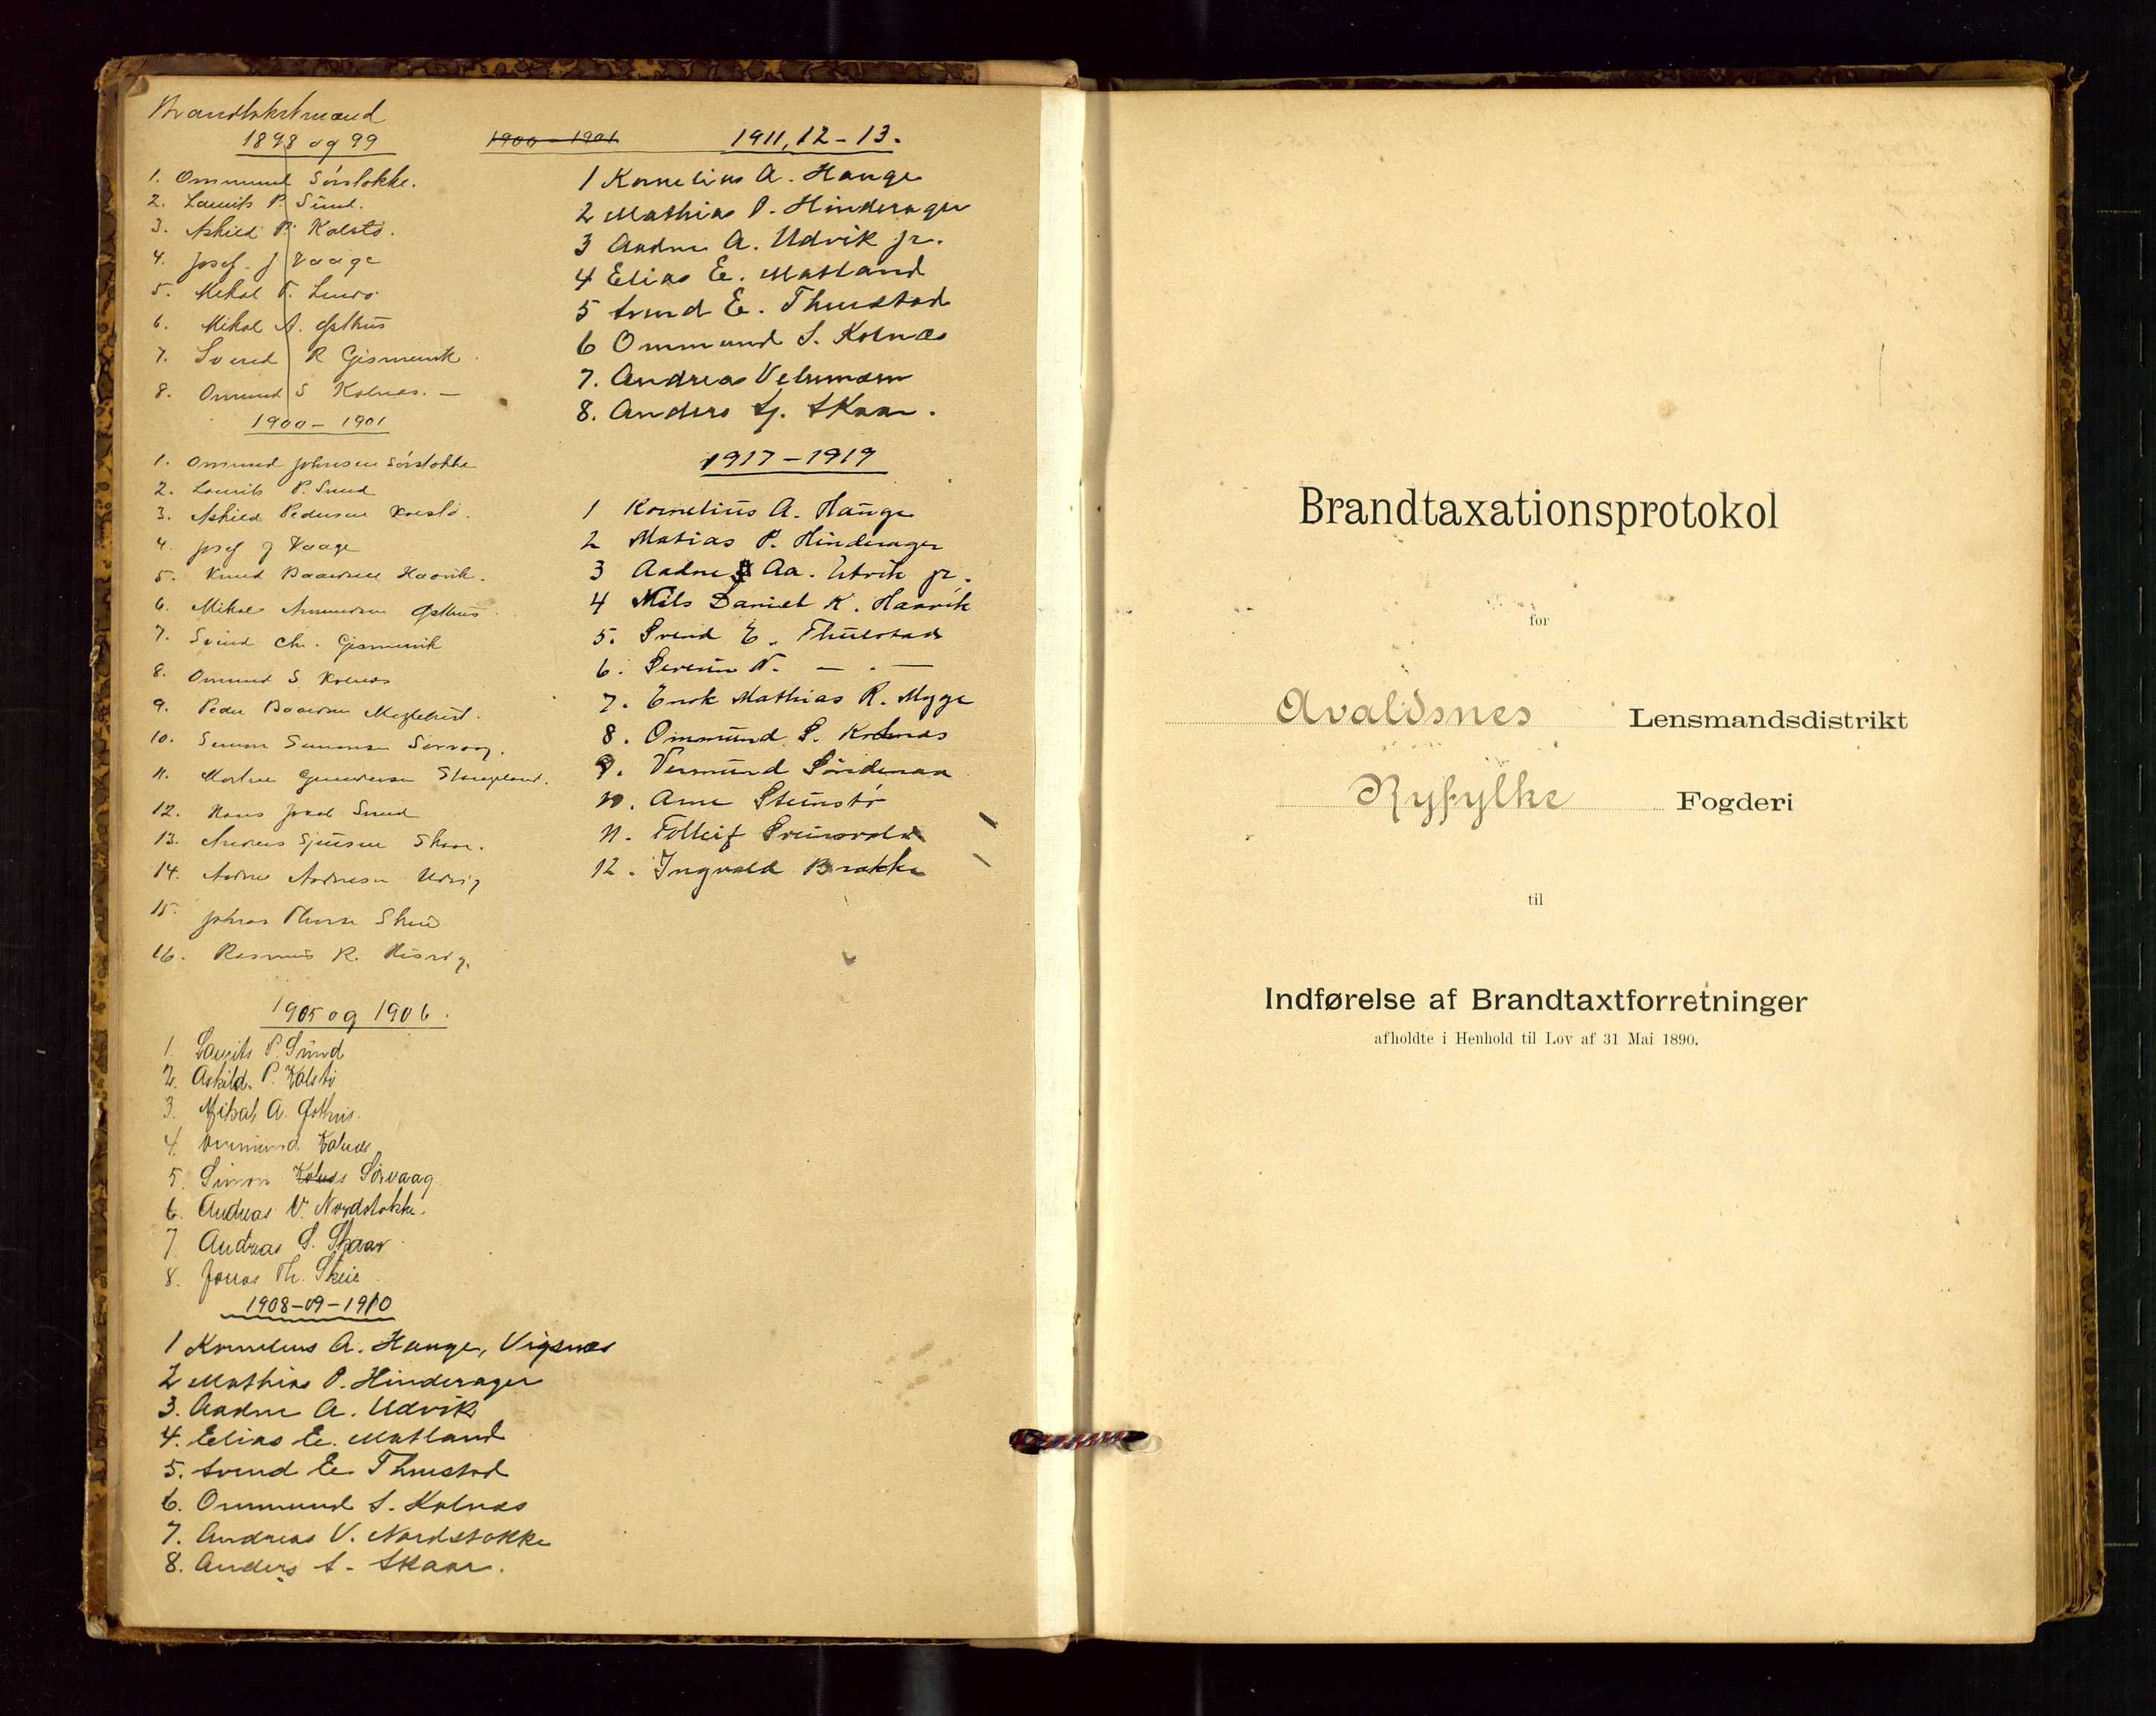 1898 og 99
1. Ommund Sørstokke.
2. Laurits P. Sund.
3. Askild P. Kolstø.
4. Josef J Vaage
5. Mikal T.
6. Mikal A. Østhus
7. Svend R Gismervik
8. Ommund S Kolnæs. —
1900 - 1901
1. Ommund Johnsen Sørstokke
2. Laurits P. Sund
3. Askild Pedersen Kolstø.
4. Josef J Vaage
5. Knud Baardsen Haavik.
6. Mikal Amundsen Østhus
7. Svend Chr. Gismervik
8. Ommund S. Kolnæs
9. Peder Baardsen
10. Simon Simonsen Sørvaag.
11. Stangeland.
12. Hans Jakob Sund
13. Anders Sjursen Skaar.
14. Aadne Aadnesen Udvig
15. Johnas Thorsen Skeie
16. Rasmus R. Hisvig.
1905 og 1906.
1. Laurits P. Sund
2. Askild P. Kolstø
3. Mikal A. Østhus.
4. Ommund Kolnæs
5. Simon Kolnæs Sørvaag
6. Andreas V. Nordstokke.
7. Andreas S. Skaar
8. Jonas Th. Skeie
1908-09-1910
1 Kornelius A. Hauge, Vigsnæs
2 Mathias P. Hinderager
3. Aadne A. Udvik
4. Elias E. Matland
5. Svend E. Thuestad
6. Ommund S. Kolnæs
7. Andreas V. Nordstokke
8. Anders S. Skaar.
1900 - 1901
1911, 12 - 13.
1 Kornelius A. Hauge
2 Mathias P. Hinderager
3 Aadne A. Udvik jr.
4 Elias E. Matland
5 Svend E. Thuestad
6 Ommund S. Kolnæs
7. Andreas
8. Anders Sj. Skaar.
1917 - 1919
1 Kornelius A. Hauge
2 Matias P. Hinderager
3 Aadne Aa. Utvik jr.
4 Nils Daniel K. Haavik
5. Svend E. Thuestad
6. Severin N. — . —
7. Enok Mathias R. Mygge
8. Ommund S. Kolnæs
9. Vermund Søndenaa
10. Arne Steinstø
11. Tolleif
12. Ingvald Brakke
Brandtaxationsprotokol
for
Avaldsnes Lensmandsdistrikt
Ryfylke Fogderi
til
Indførelse af Brandtaxtforretninger
afholdte i Henhold til Lov af 31 Mai 1890.